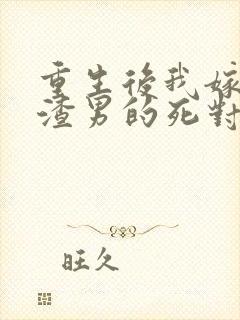 重生後我嫁
渣男的死對
旺久